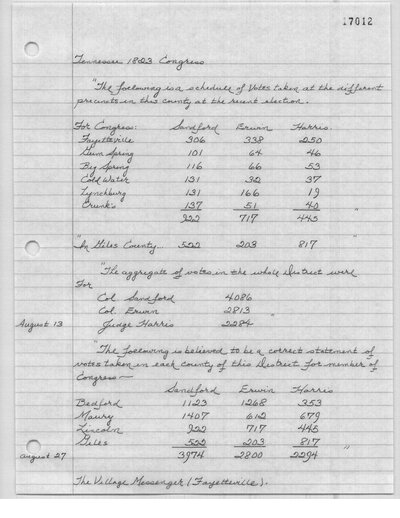 17012
Tennessee 1823 Congress
"The following is a schedule of Votes taken at the different
precincts in this county at the recent election.
For Congress: Sandford Erwin Harris
Fayetteville 306 338 250
Gum Spring 101 64 46
Big Spring 116 66 53
Cold Water 131 32 37
Lynchburg 131 166 19
Crunk's 137 51 40
922 717 445 "
"In Giles County... 522 203 817 "
"The aggregate of votes in the whole District were
For
Col. Sandford 4086
Col. Erwin 2813
August 13 Judge Harris 2284 "
"The following is believed to be a correct statement of
votes taken in each county of this District for member of
Congress—
Sandford Erwin Harris
Bedford 1123 1268 353
Maury 1407 612 679
Lincoln 922 717 445
Giles 522 203 817
August 27 3974 2800 2294 "
The Village Messenger (Fayetteville).